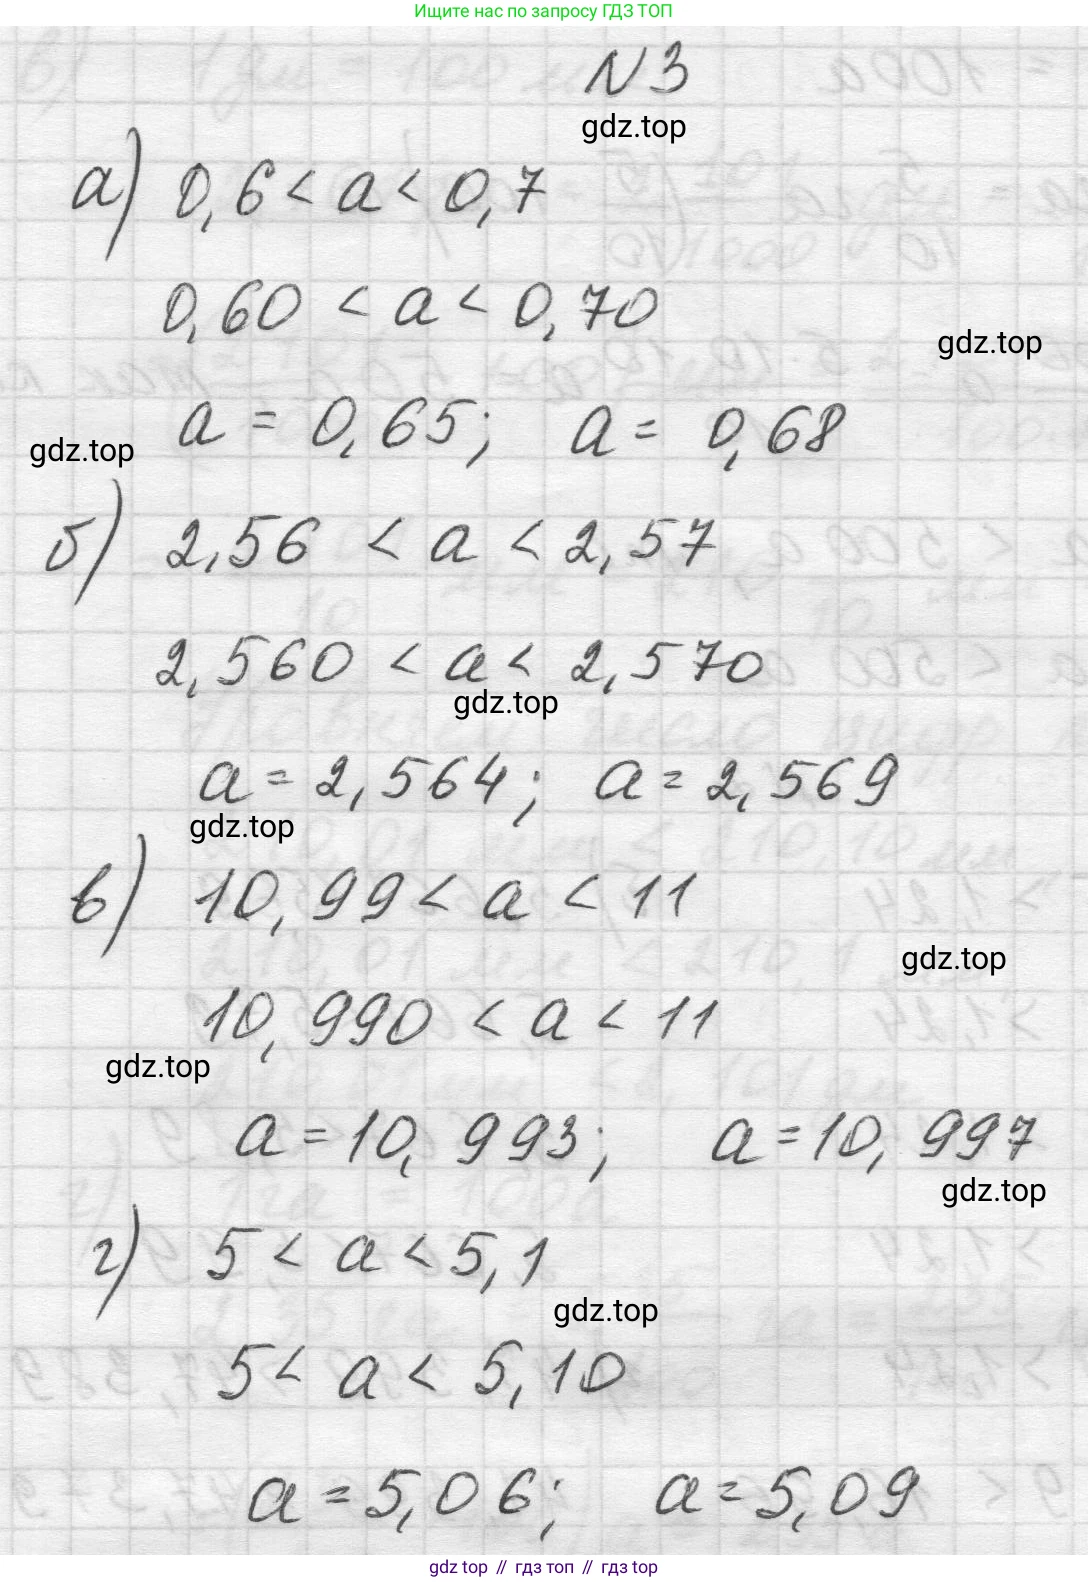 Ищите нас по запросу ГДЗ ТОП
N3
gdz.top
а) 0,6 < a < 0,7
0,60 < a < 0,70
gdz.top
a = 0,65; a = 0,68
gdz.top
б) 2,56 < a < 2,57
2,560 < a < 2,570
gdz.top
a = 2,564; a = 2,569
gdz.top
в) 10,99 < a < 11
gdz.top
10,990 < a < 11
gdz.top
a = 10,993; a = 10,997
gdz.top
г) 5 < a < 5,1
gdz.top
5 < a < 5,10
a = 5,06; a = 5,09
gdz top // гдз топ // gdz top